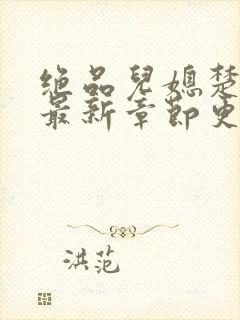 绝品儿媳楚
最新章节更
洪范